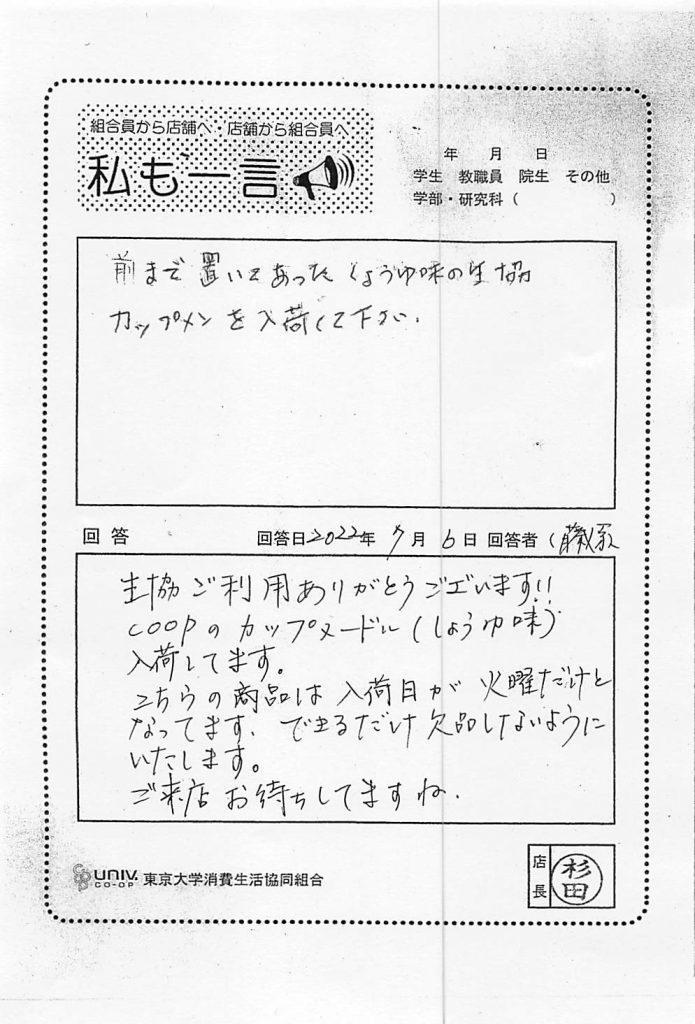 組合員から店舗へ・店舗から組合員へ
私も一言
年 月 日
学生 教職員 院生 その他
学部・研究科（ ）
前まで置いてあったしょうゆ味の生協
カップメンを入荷して下さい.
回答 回答日2022年 7月 6日 回答者（藤原
生協ご利用ありがとうございます!!
COOPのカップヌードル（しょうゆ味）
入荷してます。
こちらの商品は入荷日が火曜だけと
なってます. できるだけ欠品しないように
いたします。
ご来店お待ちしてますね.
UNIV. CO-OP 東京大学消費生活協同組合
店長 杉田